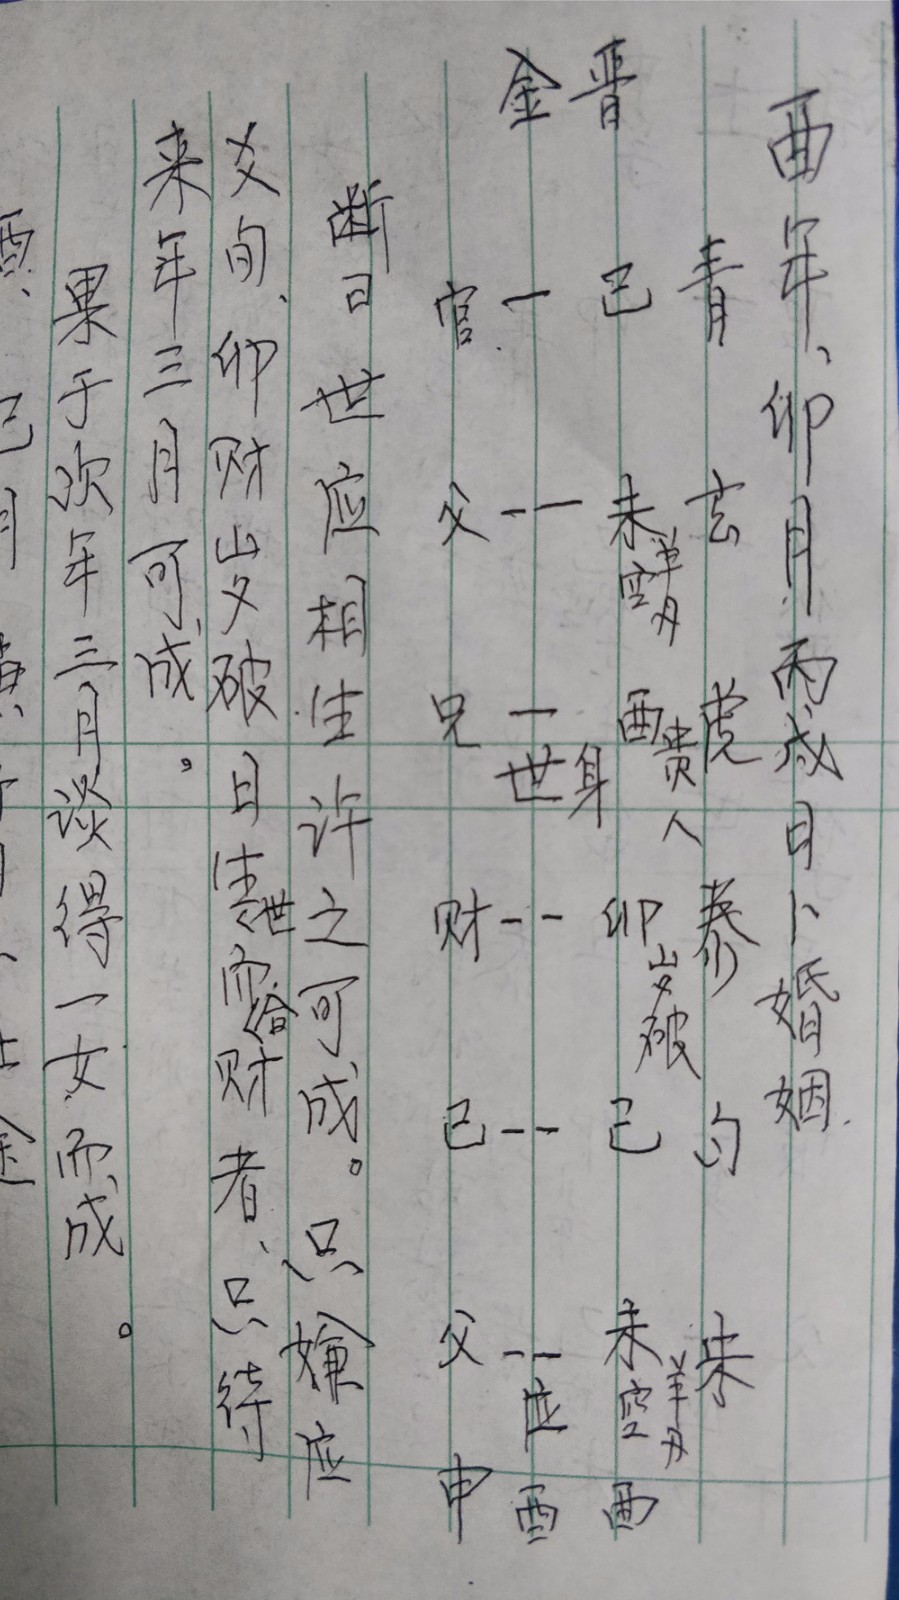 酉年、卯月丙戌日卜婚姻.
青 玄 虎 泰 勾 朱
晋 巳 未 空 羊刃 酉 贵人 身 卯 岁破 巳 未 空 羊刃 酉
金 一 -- 一 世 -- -- -- 应 酉
官 父 兄 财 己 父 申
断日世应相生许之可成。只嫌应
爻旬、卯财岁破日生世而合财者、只待
来年三月可成。
果于次年三月谈得一女而成。